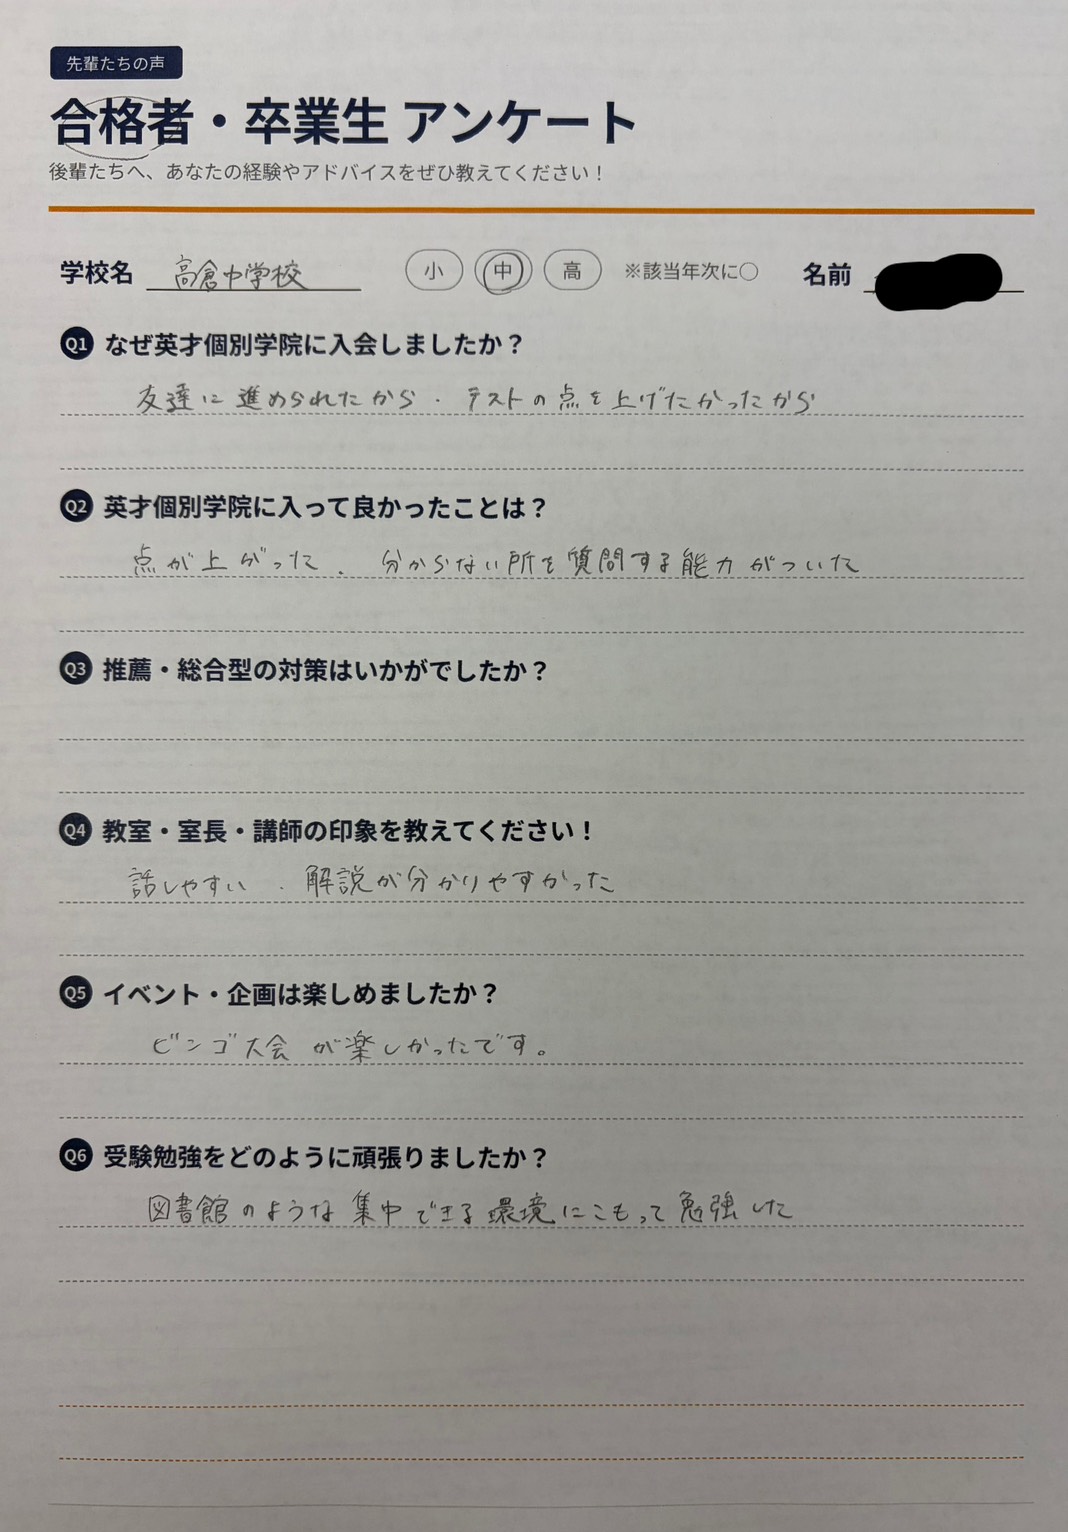 先輩たちの声
合格者・卒業生 アンケート
後輩たちへ、あなたの経験やアドバイスをぜひ教えてください！
学校名 高倉中学校 小 中 高 ※該当年次に○ 名前
Q1 なぜ英才個別学院に入会しましたか？
友達に進められたから．テストの点を上げたかったから
Q2 英才個別学院に入って良かったことは？
点が上がった．分からない所を質問する能力がついた
Q3 推薦・総合型の対策はいかがでしたか？
Q4 教室・室長・講師の印象を教えてください！
話しやすい．解説が分かりやすかった
Q5 イベント・企画は楽しめましたか？
ビンゴ大会が楽しかったです。
Q6 受験勉強をどのように頑張りましたか？
図書館のような集中できる環境にこもって勉強した